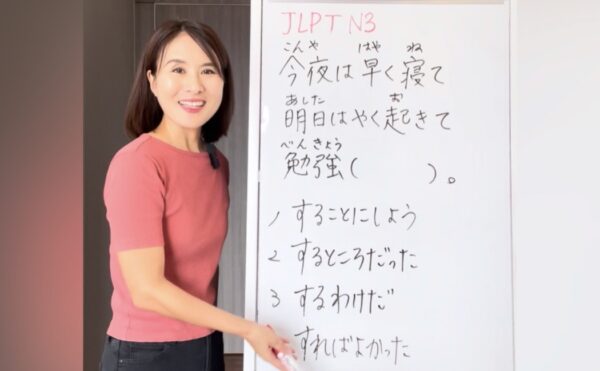 JLPT N3
こんや はや ね
今夜は早く寝て
あした お
明日はやく起きて
べんきょう
勉強( )。
1 することにしよう
2 するところだった
3 するわけだ
すればよかった